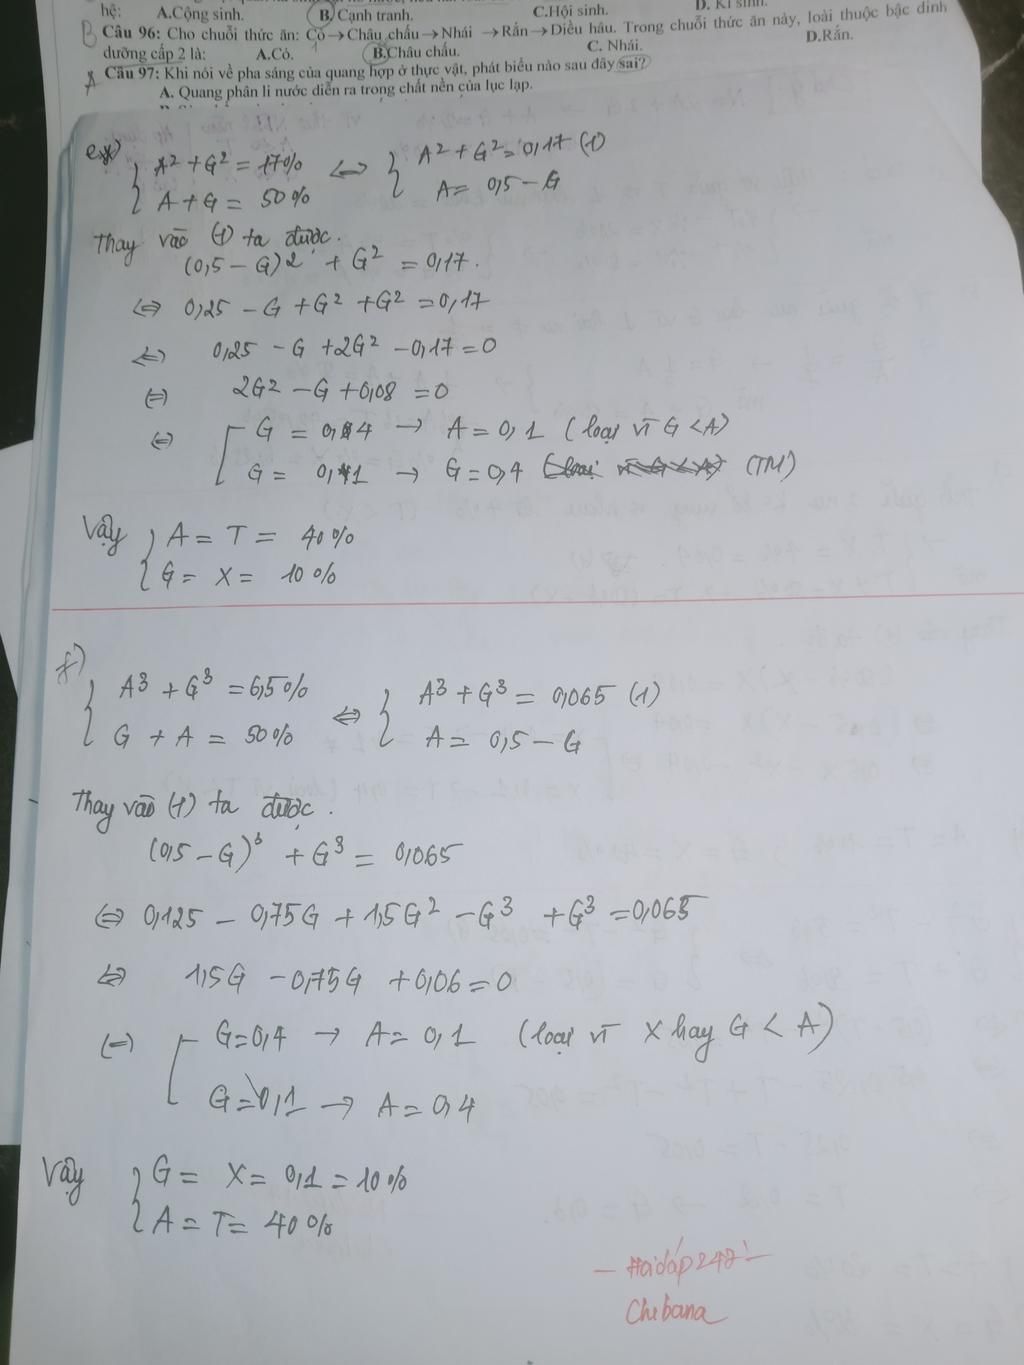 hệ: A.Cộng sinh. B. Cạnh tranh. C.Hội sinh. D. Kí sinh.
B Câu 96: Cho chuỗi thức ăn: Cỏ→Châu chấu→Nhái →Rắn→Diều hâu. Trong chuỗi thức ăn này, loài thuộc bậc dinh
dưỡng cấp 2 là: A.Cỏ. B.Châu chấu. C. Nhái. D.Rắn.
A Câu 97: Khi nói về pha sáng của quang hợp ở thực vật, phát biểu nào sau đây sai?
A. Quang phân li nước diễn ra trong chất nền của lục lạp.
e)
{ A² + G² = 17% ⇔ { A² + G² = 0,17 (1)
A + G = 50% A = 0,5 - G
Thay vào (1) ta được.
(0,5 - G)2 + G² = 0,17.
⇔ 0,25 - G + G² + G² = 0,17
⇔ 0,25 - G + 2G² - 0,17 = 0
⇔ 2G² - G + 0,08 = 0
⇔ [ G = 0,4 → A = 0,1 (loại vì G < A)
G = 0,1 → G = 0,4 (TM)
Vậy { A = T = 40%
G = X = 10%
f)
{ A³ + G³ = 6,5% ⇔ { A³ + G³ = 0,065 (1)
G + A = 50% A = 0,5 - G
Thay vào (1) ta được.
(0,5 - G)³ + G³ = 0,065
⇔ 0,125 - 0,75G + 1,5G² - G³ + G³ = 0,065
⇔ 1,5G - 0,75G + 0,06 = 0
⇔ [ G = 0,4 → A = 0,1 (loại vì X hay G < A)
G = 0,1 → A = 0,4
Vậy { G = X = 0,1 = 10%
A = T = 40%
- Hoidáp247 -
Chibana